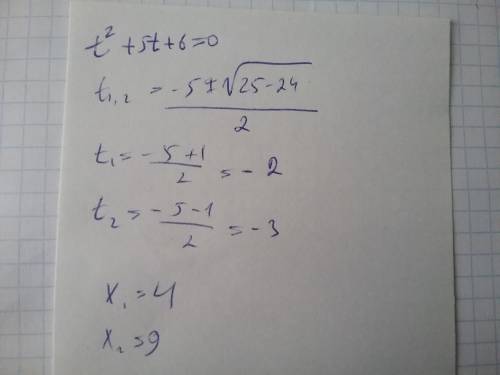 t² + 5t + 6 = 0
t₁,₂ = (-5 ± √(25-24)) / 2
t₁ = (-5+1)/2 = -2
t₂ = (-5-1)/2 = -3
x₁ = 4
x₂ = 9